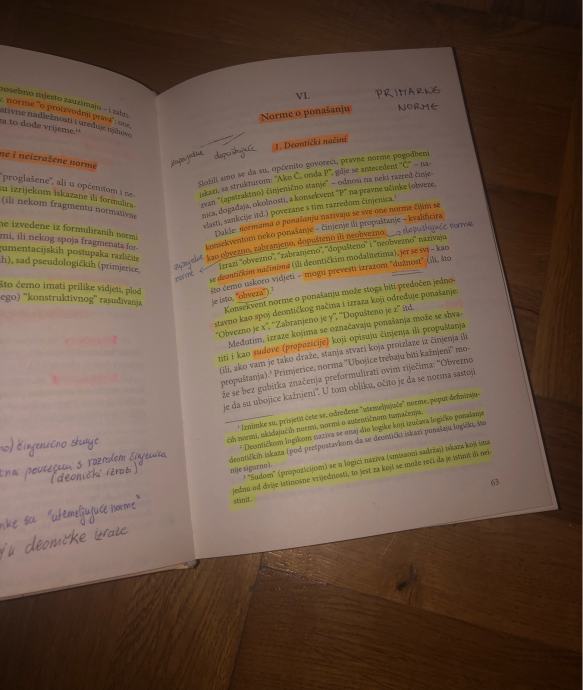 posebno mjesto zauzimaju – i zahti-
norme "o proizvodnji prava"; one,
ativne nadležnosti i uređuje njihovo
za to dođe vrijeme.
ne i neizražene norme
"proglašene", ali u općenitom i ne-
su izrijekom iskazane ili formulira-
(ili nekom fragmentu normativne
ne izvedene iz formuliranih normi
mi, ili nekog spoja fragmenata for-
gumentacijskih postupaka različite
h), sad pseudologičkih (primjerice,
što ćemo imati prilike vidjeti, plod
nego) "konstruktivnog" rasuđivanja
činjenično stanje
povezan s razredom činjenica
(deonički izrazi)
su "utemeljujuće norme"
deoničke izraze
VI.
PRIMARNE
NORME
Norme o ponašanju
zapovjedne dopuštajuće
1. Deontički načini
Složili smo se da su, općenito govoreći, pravne norme pogodbeni
iskazi, sa strukturom: "Ako Č, onda P", gdje se antecedent "Č" – na-
zvan "(apstraktno) činjenično stanje" – odnosi na neki razred činje-
nica, događaja, okolnosti, a konsekvent "P" na pravne učinke (obveze,
vlasti, sankcije itd.) povezane s tim razredom činjenica.¹
Dakle: normama o ponašanju nazivaju se sve one norme čijim se
konsekventom neko ponašanje – činjenje ili propuštanje – kvalificira
kao obvezno, zabranjeno, dopušteno ili neobvezno.
dopuštajuće norme
zapovjedne
norme
Izrazi "obvezno", "zabranjeno", "dopušteno" i "neobvezno" nazivaju
se deontičkim načinima (ili deontičkim modalitetima), jer se svi – kao
što ćemo uskoro vidjeti – mogu prevesti izrazom "dužnost" (ili, što
je isto, "obveza").²
Konsekvent norme o ponašanju može stoga biti predočen jedno-
stavno kao spoj deontičkog načina i izraza koji određuje ponašanje:
"Obvezno je x", "Zabranjeno je y", "Dopušteno je z" itd.
Međutim, izraze kojima se označavaju ponašanja može se shva-
titi i kao sudove (propozicije) koji opisuju činjenja ili propuštanja
(ili, ako vam je tako draže, stanja stvari koja proizlaze iz činjenja ili
propuštanja).³ Primjerice, norma "Ubojice trebaju biti kažnjeni" mo-
že se bez gubitka značenja preformulirati ovim riječima: "Obvezno
je da su ubojice kažnjeni". U tom obliku, očito je da se norma sastoji
¹ Iznimke su, prisjetit ćete se, određene "utemeljujuće" norme, poput definiraju-
ćih normi, ukidajućih normi, normi o autentičnom tumačenju.
² Deontičkom logikom naziva se onaj dio logike koji izučava logičko ponašanje
deontičkih iskaza (pod pretpostavkom da se deontički iskazi ponašaju logički, što
nije sigurno).
³ "Sudom" (propozicijom) se u logici naziva (smisaoni sadržaj) iskaza koji ima
jednu od dvije istinosne vrijednosti, to jest za koji se može reći da je istinit ili nei-
stinit.
63